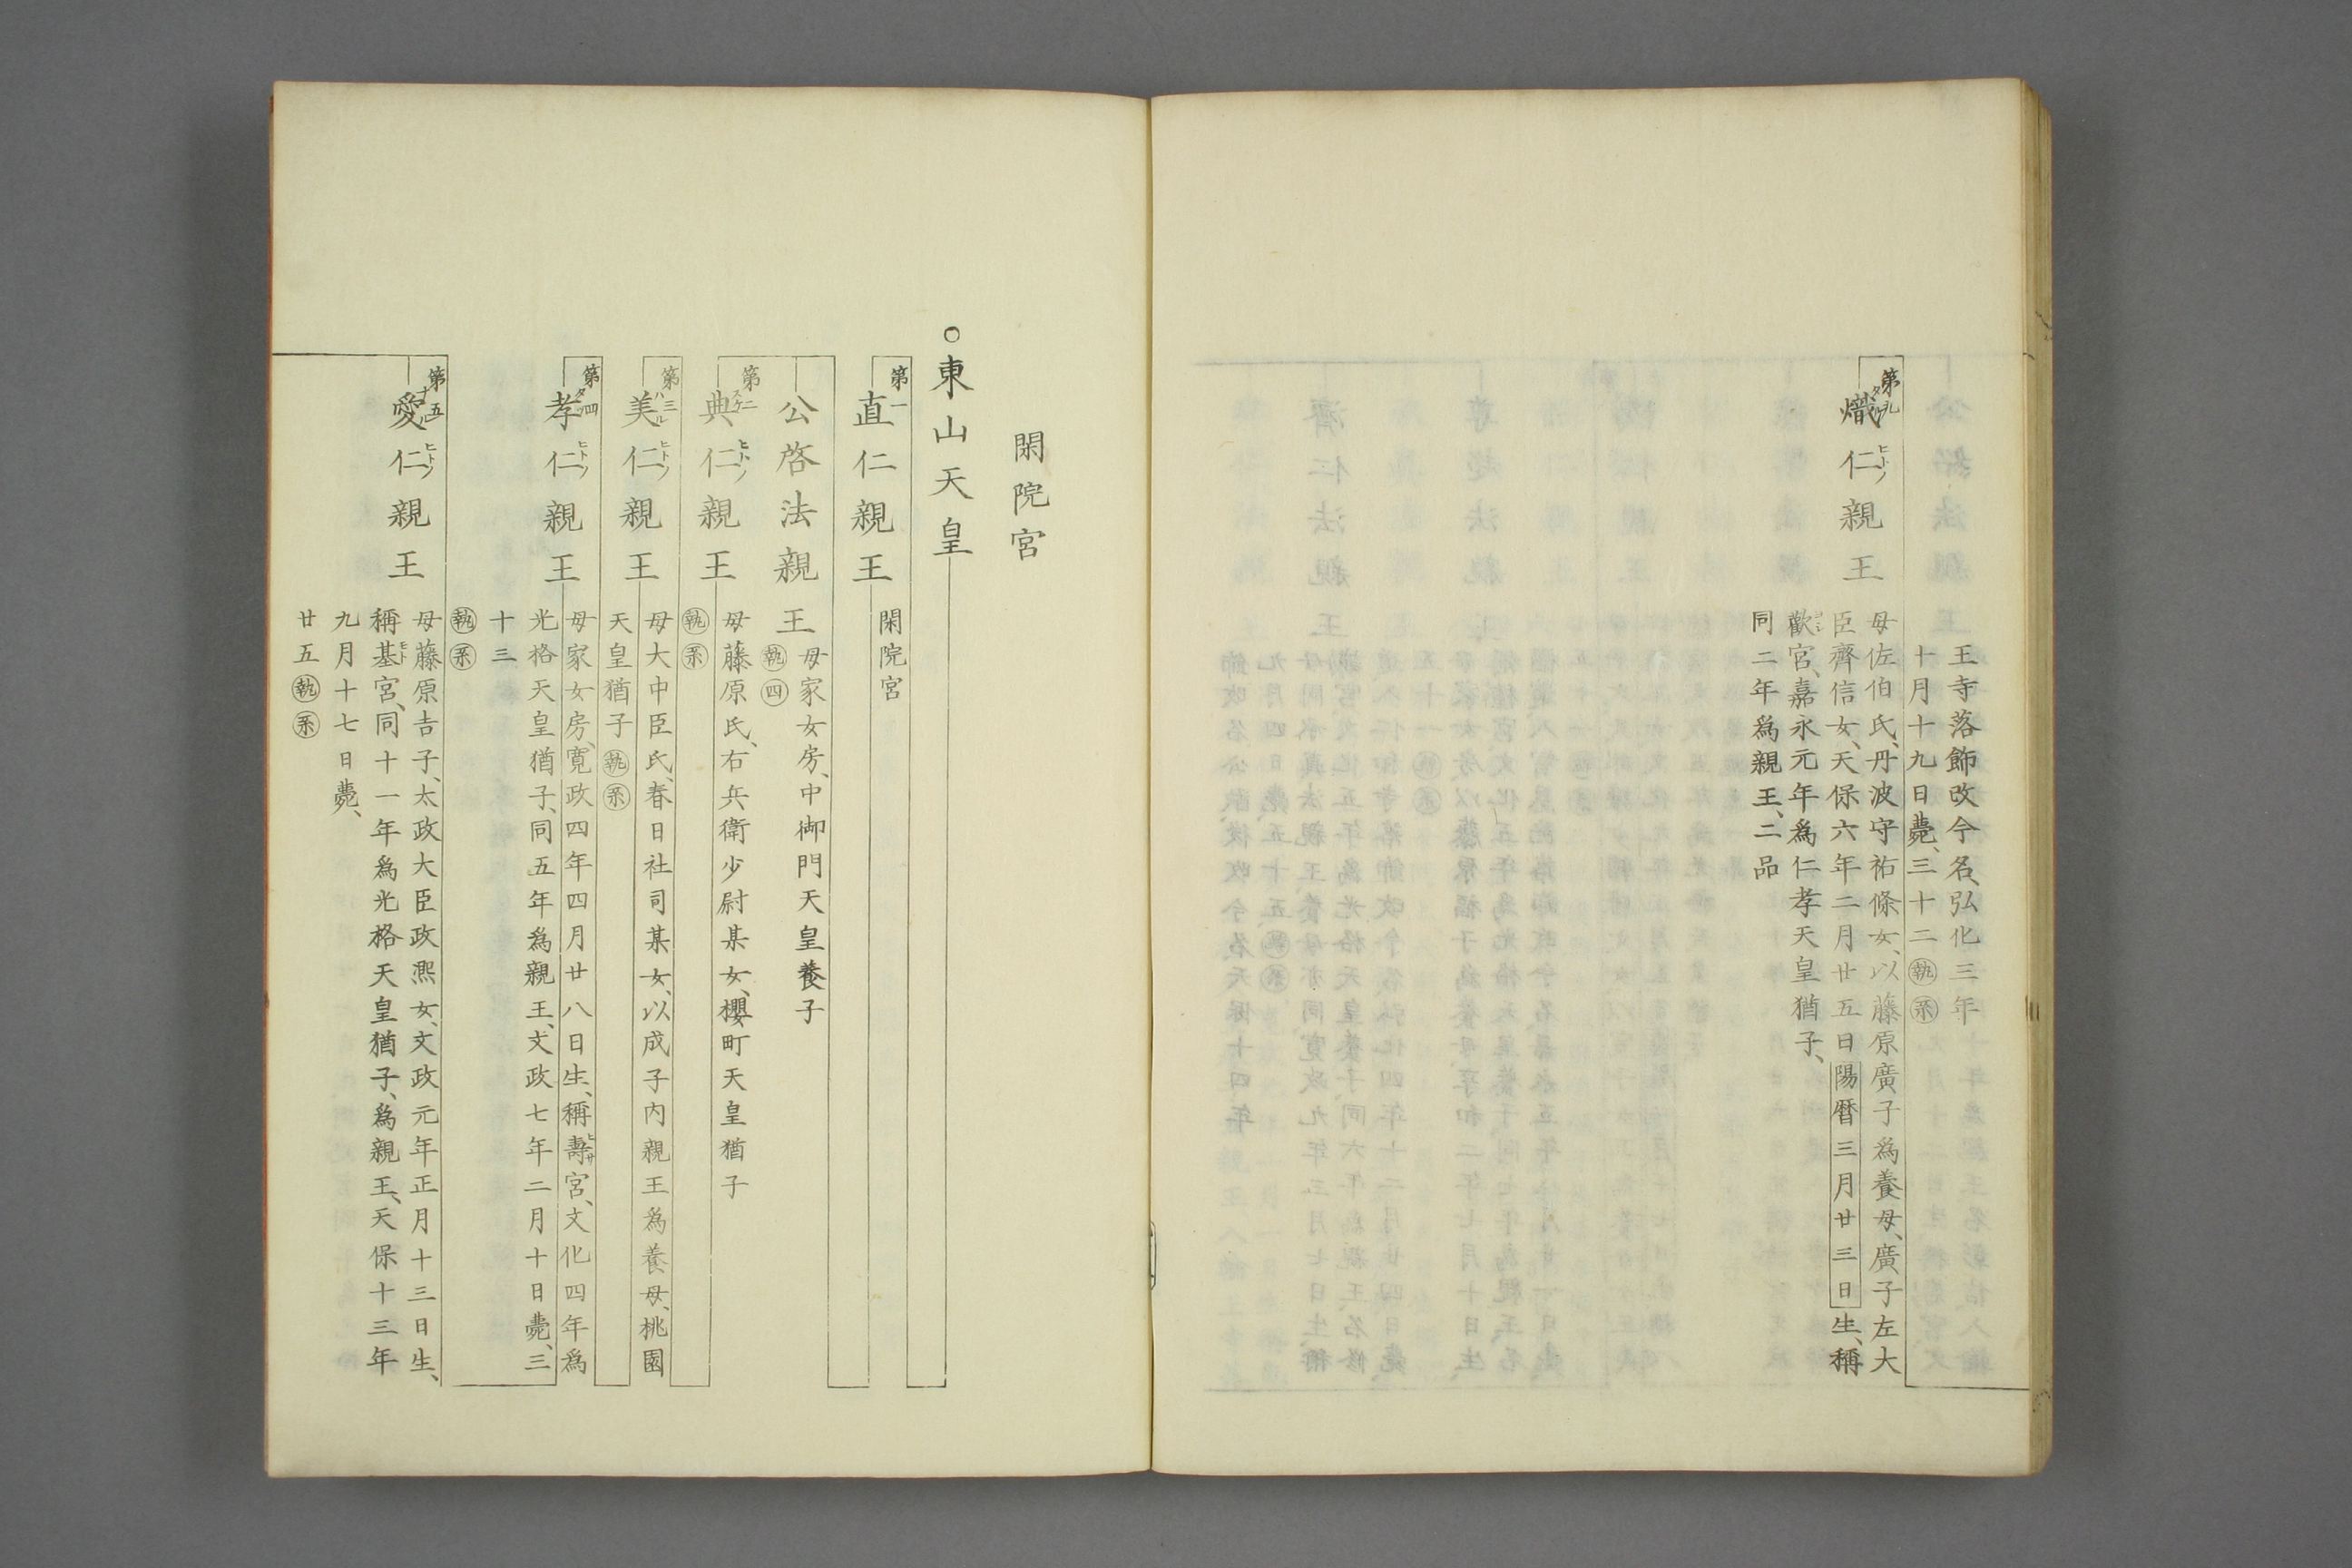 王寺落飾改今名、弘化三年
十月十九日薨、三十二㊀執系
第九
熾仁親王
タル ヒトノ
母佐伯氏、丹波守祐條女、以藤原廣子爲養母、廣子左大
臣齊信女、天保六年二月廿五日陽暦三月廿三日生、稱
歡宮、嘉永元年爲仁孝天皇猶子、
同二年爲親王、二品
閑院宮
○東山天皇
第一
直仁親王
閑院宮
公啓法親王
母家女房、中御門天皇養子
執四
第二
典仁親王
スケ ヒトノ
母藤原氏、右兵衛少尉某女、櫻町天皇猶子
執系
第三
美仁親王
ハル ヒトノ
母大中臣氏、春日社司某女、以成子内親王爲養母、桃園
天皇猶子執系
第四
孝仁親王
タカ ヒトノ
母家女房、寛政四年四月廿八日生、稱壽宮、文化四年爲
光格天皇猶子、同五年爲親王、文政七年二月十日薨、三
十三
執系
第五
愛仁親王
ナル ヒトノ
母藤原吉子、太政大臣政熙女、文政元年正月十三日生、
稱基宮、同十一年爲光格天皇猶子、爲親王、天保十三年
九月十七日薨、
廿五執系